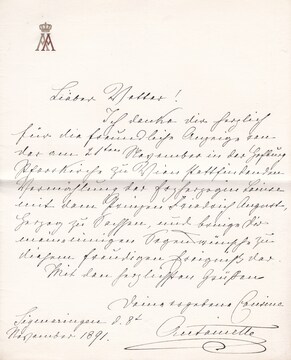 Lieber Vetter!
Ich danke dir herzlich
für die freundliche Anzeige von
der am 21ten November in der Hofburg
Pfarrkirche zu Wien stattfindenden
Vermählung der Erzherzogin Luise
mit dem Prinzen Friedrich August,
Herzog zu Sachsen, und bringe Dir
meine innigen Segenswünsche zu
diesem freudigen Ereigniß dar.
Mit den herzlichsten Grüßen
Deine ergebene Cousine
Antoinette
Sigmaringen d. 8t
November 1891.